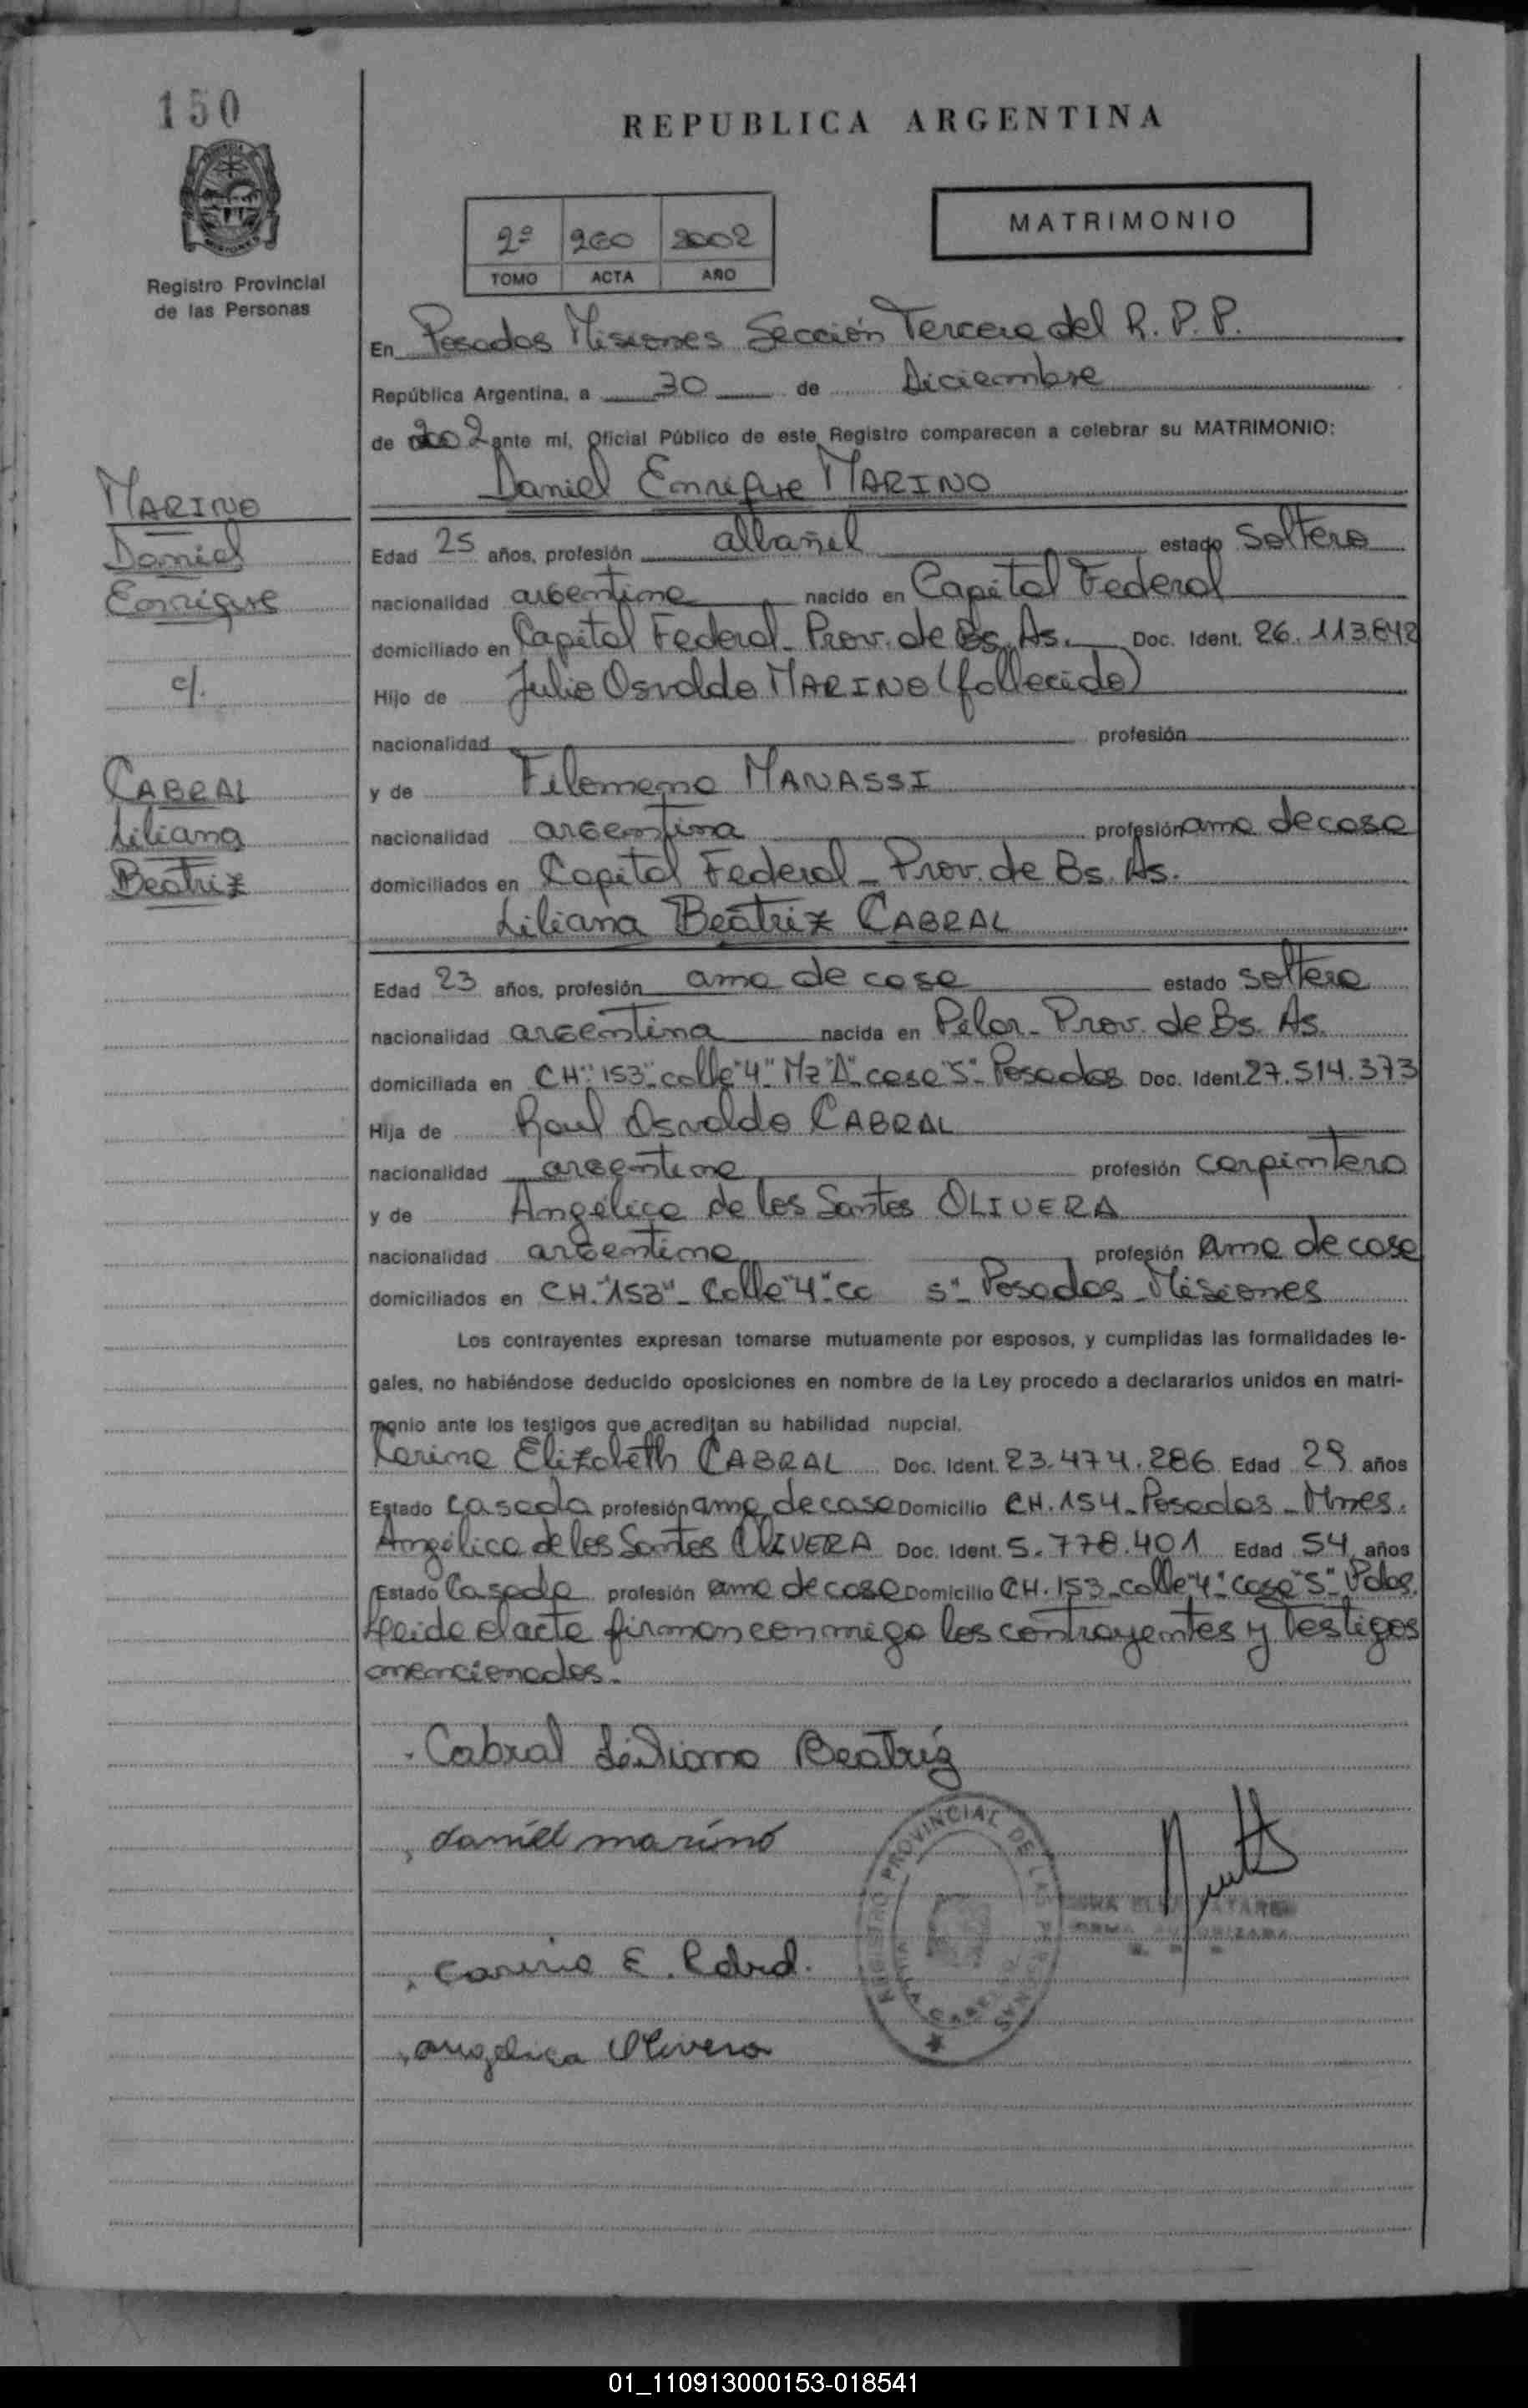 150
REPUBLICA ARGENTINA
MATRIMONIO
2º 260 2002
TOMO ACTA AÑO
Registro Provincial
de las Personas
En Posadas Misiones Sección Tercera del R. P. P.
República Argentina, a 30 de Diciembre
de 2002 ante mí, Oficial Público de este Registro comparecen a celebrar su MATRIMONIO:
Daniel Enrique MARINO
MARINO
Daniel
Enrique
c/.
CABRAL
Liliana
Beatriz
Edad 25 años, profesión albañil estado soltero
nacionalidad argentina nacido en Capital Federal
domiciliado en Capital Federal - Prov. de Bs. As. Doc. Ident. 26.113.842
Hijo de Julio Osvaldo MARINO (fallecido)
nacionalidad profesión
y de Filomena MANASSI
nacionalidad argentina profesión ama de casa
domiciliados en Capital Federal - Prov. de Bs. As.
Liliana Beatriz CABRAL
Edad 23 años, profesión ama de casa estado soltera
nacionalidad argentina nacida en Pilar - Prov. de Bs. As.
domiciliada en CH. "153" - calle "4" Mz "A" casa "5" - Posadas Doc. Ident. 27.514.373
Hija de Raul Osvaldo CABRAL
nacionalidad argentina profesión carpintero
y de Angélica de los Santos OLIVERA
nacionalidad argentina profesión ama de casa
domiciliados en CH. "153" - Calle "4" - ca 5" - Posadas - Misiones
Los contrayentes expresan tomarse mutuamente por esposos, y cumplidas las formalidades le-
gales, no habiéndose deducido oposiciones en nombre de la Ley procedo a declararlos unidos en matri-
monio ante los testigos que acreditan su habilidad nupcial.
Karina Elizabeth CABRAL Doc. Ident. 23.474.286 Edad 29 años
Estado casada profesión ama de casa Domicilio CH. 154 - Posadas - Mnes.
Angélica de los Santos OLIVERA Doc. Ident. 5.778.401 Edad 54 años
Estado Casada profesión ama de casa Domicilio CH. 153 - calle "4" - casa "5" - Pdas.
Leida el acta firman conmigo los contrayentes y Testigos
mencionados.
Cabral Liliana Beatriz
daniel marino
Carina E. Cabral.
angelica Olivera
REGISTRO PROVINCIAL DE LAS PERSONAS
01_110913000153-018541